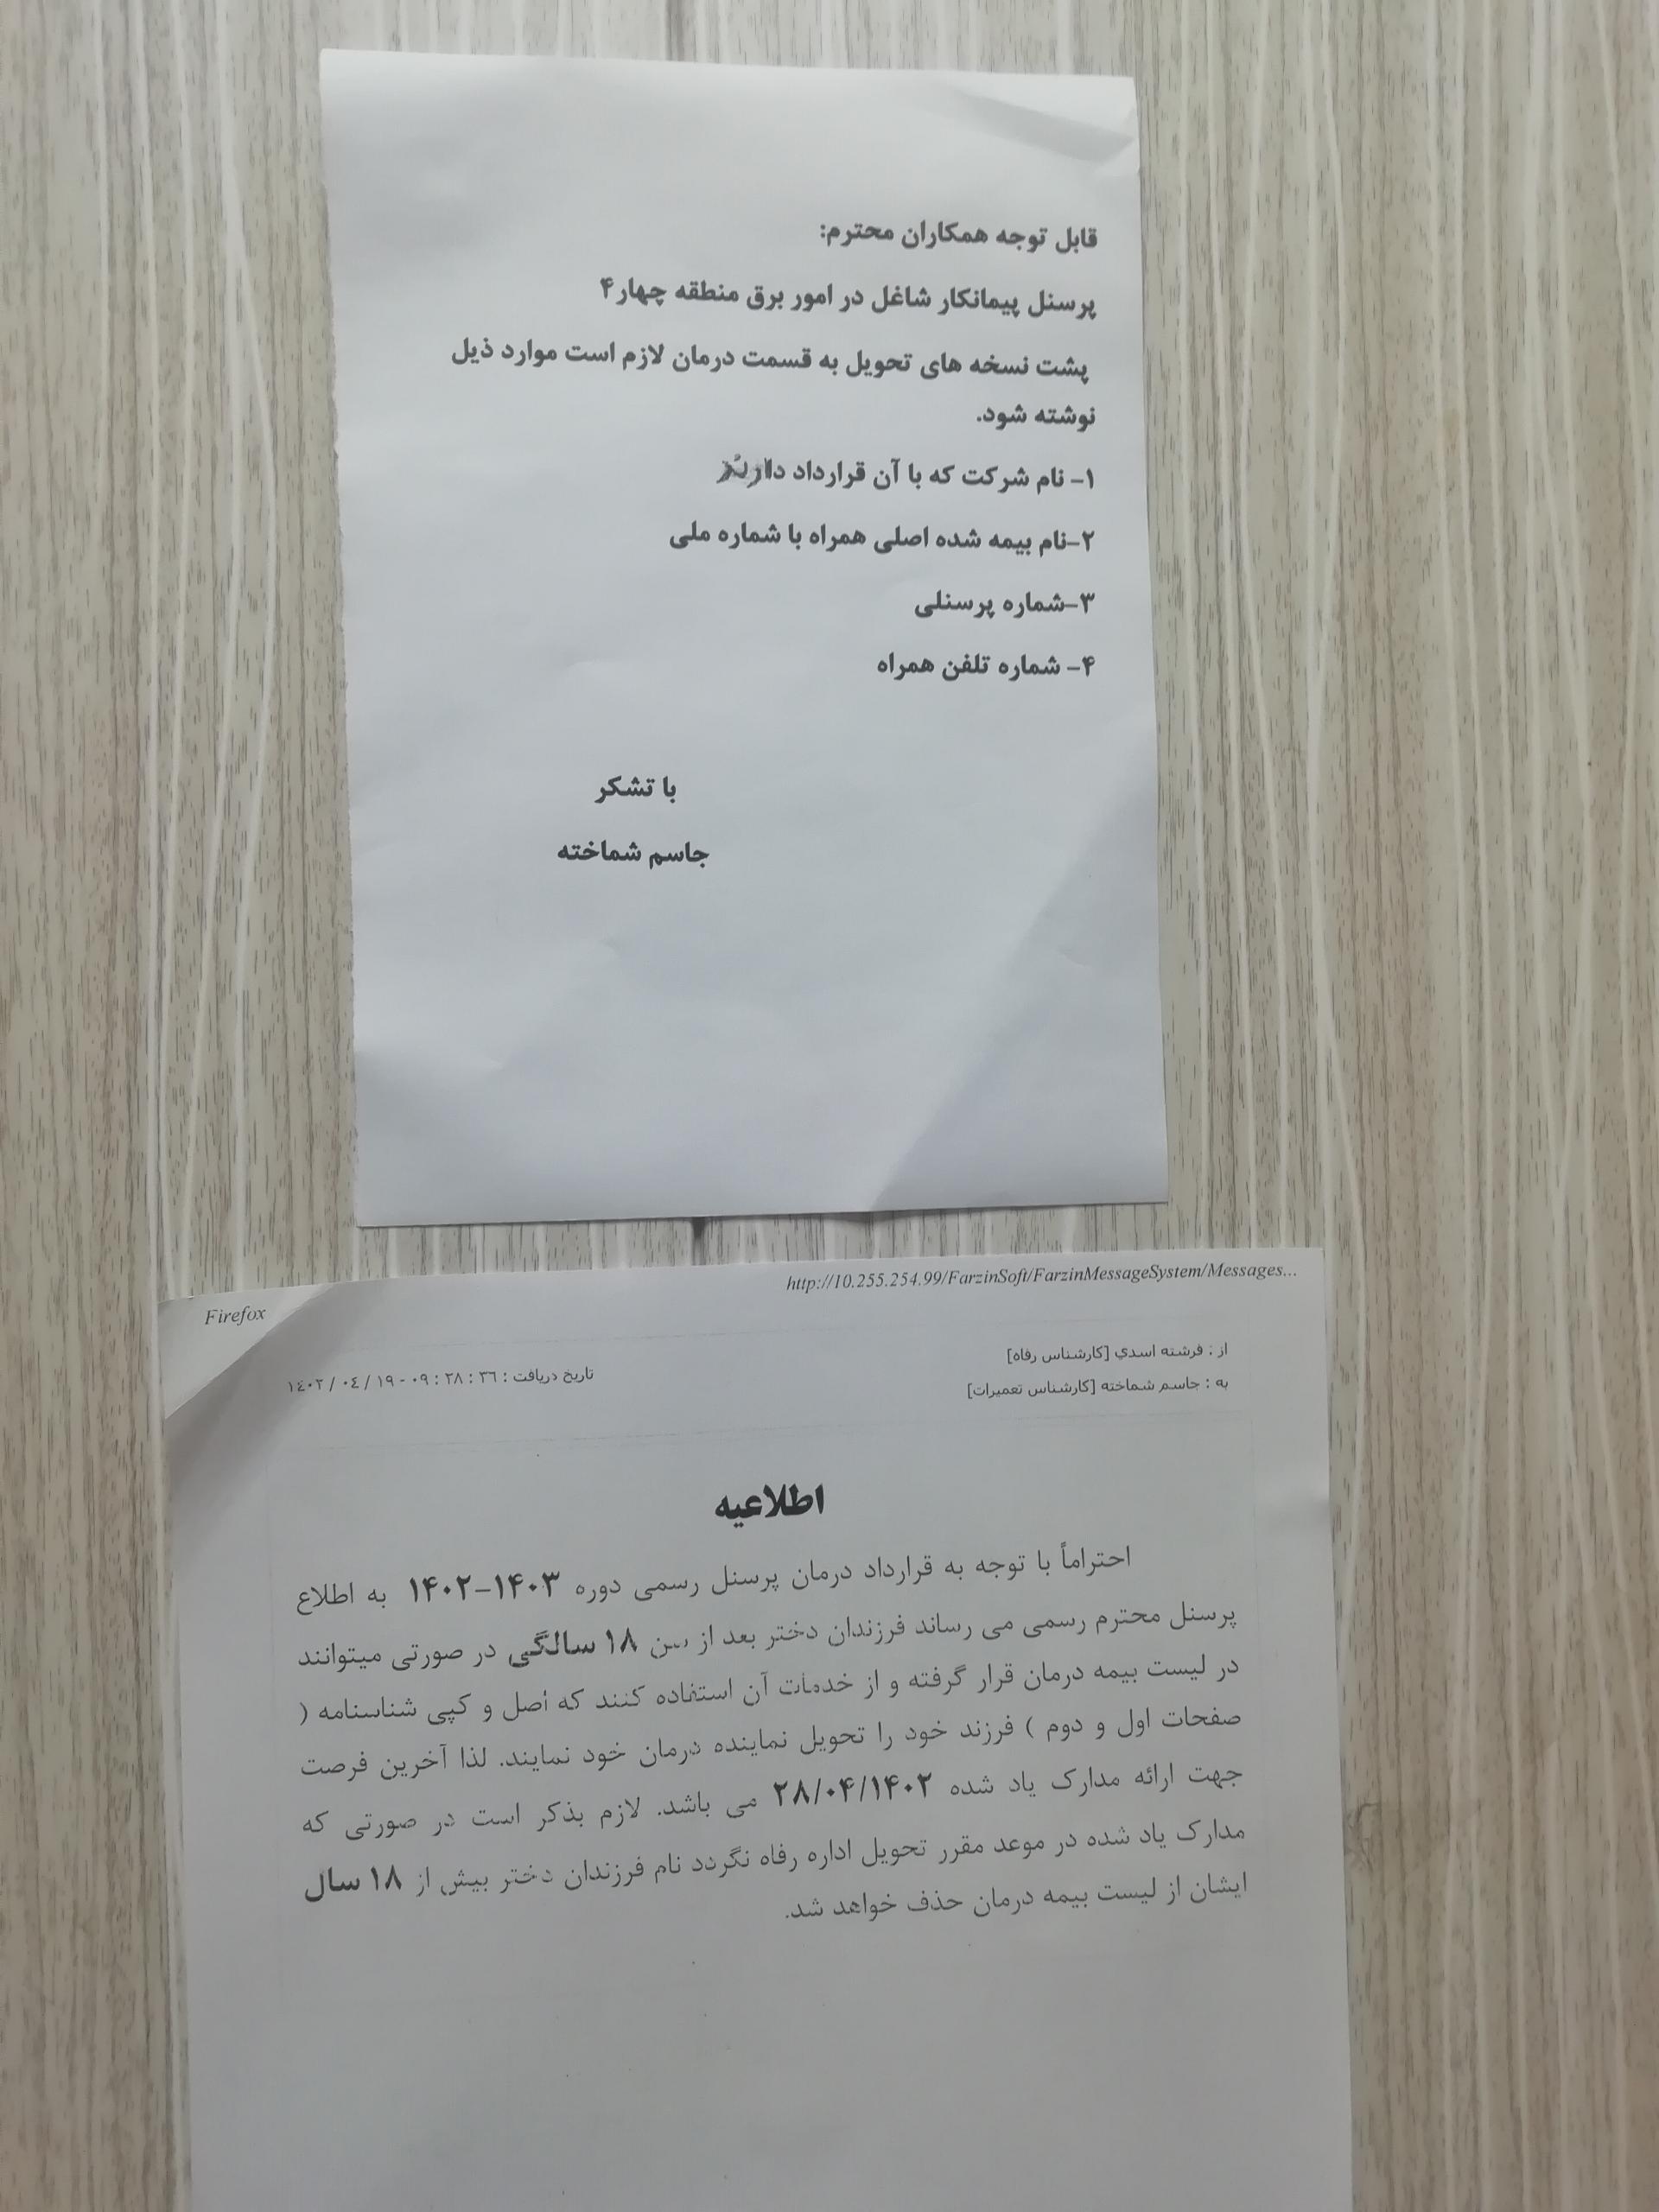 قابل توجه همکاران محترم:
پرسنل پیمانکار شاغل در امور برق منطقه چهار۴
پشت نسخه های تحویل به قسمت درمان لازم است موارد ذیل
نوشته شود.
۱- نام شرکت که با آن قرارداد دارند
۲-نام بیمه شده اصلی همراه با شماره ملی
۳-شماره پرسنلی
۴- شماره تلفن همراه
با تشکر
جاسم شماخته
Firefox
http://10.255.254.99/FarzinSoft/FarzinMessageSystem/Messages...
از : فرشته اسدي [کارشناس رفاه]
به : جاسم شماخته [کارشناس تعمیرات]
تاریخ دریافت : ۳۶ : ۲۸ : ۰۹ - ۱۹ / ۰۴ / ۱۴۰۲
اطلاعیه
احتراماً با توجه به قرارداد درمان پرسنل رسمی دوره ۱۴۰۳-۱۴۰۲ به اطلاع
پرسنل محترم رسمی می رساند فرزندان دختر بعد از سن ۱۸ سالگی در صورتی میتوانند
در لیست بیمه درمان قرار گرفته و از خدمات آن استفاده کنند که اصل و کپی شناسنامه (
صفحات اول و دوم ) فرزند خود را تحویل نماینده درمان خود نمایند. لذا آخرین فرصت
جهت ارائه مدارک یاد شده ۲۸/۰۴/۱۴۰۲ می باشد. لازم بذکر است در صورتی که
مدارک یاد شده در موعد مقرر تحویل اداره رفاه نگردد نام فرزندان دختر بیش از ۱۸ سال
ایشان از لیست بیمه درمان حذف خواهد شد.